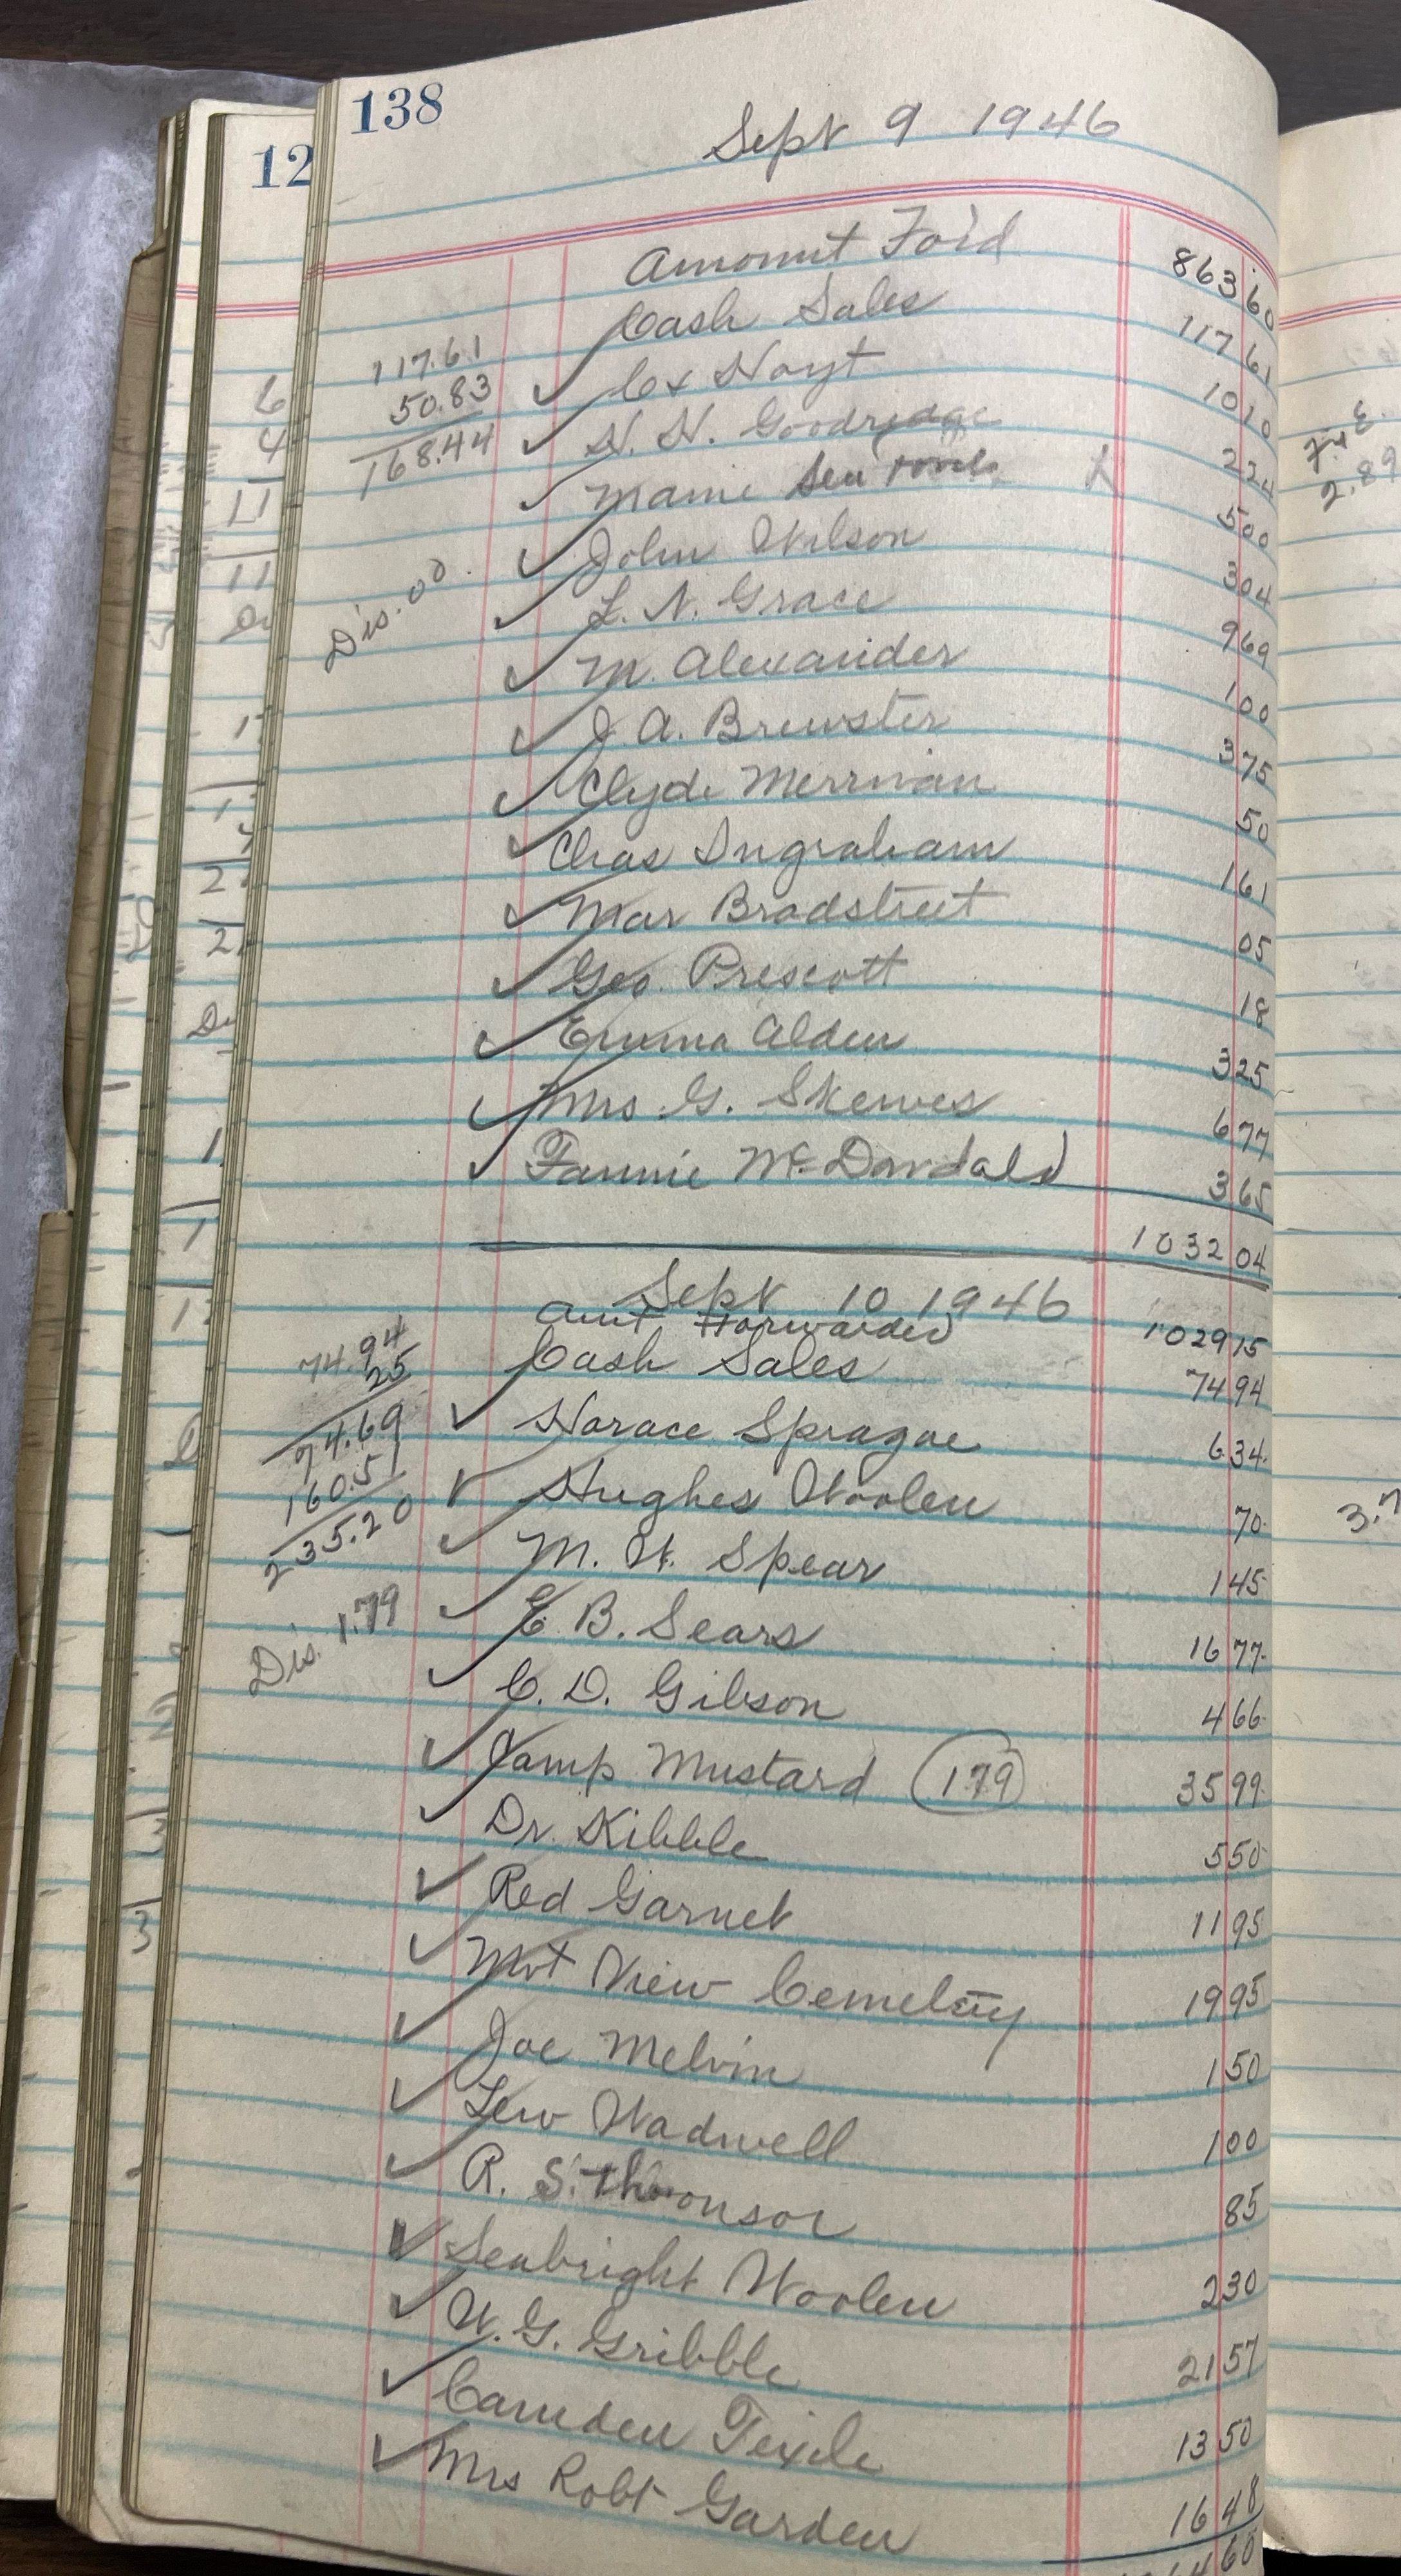 138
Sept 9 1946
12
Amount Fo'd 863 60
Cash Sales 117 61
117.61
50.83
168.44
Cx Hoyt 10 10
H. H. Goodridge 2 24
Mamie 5 00
John Wilson 3 04
L. N. Grace 9 69
Dis. 00.
M. Alexander 1 00
J. A. Brewster 3 75
Clyde Merriman 50
Chas Ingraham 1 61
Mar Bradstreet 05
Geo. Prescott 18
Emma Alden 3 25
Mrs. G. Skewes 6 77
Fannie McDondald 3 65
1032 04
Sept 10 1946
Amt Forwarded 1029 15
Cash Sales 74 94
74.94
25
74.69
160.51
235.20
Horace Sprague 6 34
Hughes Woolen 70
M. W. Spear 1 45
Dis. 1.79
E. B. Sears 16 77
C. D. Gibson 4 66
Camp Mustard 179 35 99
Dr. Kibble 5 50
Red Garnet 11 95
Mt View Cemetery 19 95
Joe Melvin 1 50
Lew Wadwell 1 00
R. S. 85
Seabright Woolen 2 30
W. G. Gribble 21 57
Camden Texile 13 50
Mrs Robt Garden 16 48
60
2.89